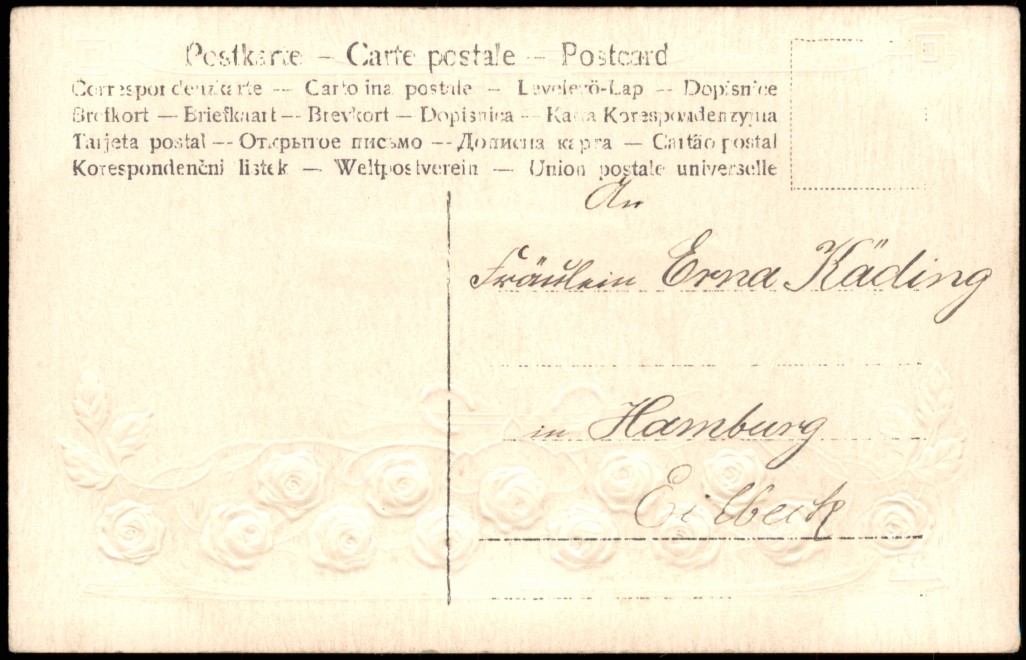 Postkarte – Carte postale – Postcard
Correspondenzkarte – Cartolina postale – Levelező-Lap – Dopisnice
Brefkort – Briefkaart – Brevkort – Dopisnica – Karta Korespondenzyjna
Tarjeta postal – Открытое письмо – Дописна карта – Cartão postal
Korespondenční listek – Weltpostverein – Union postale universelle
An
Fräulein Erna Käding
in Hamburg
Eilbeck